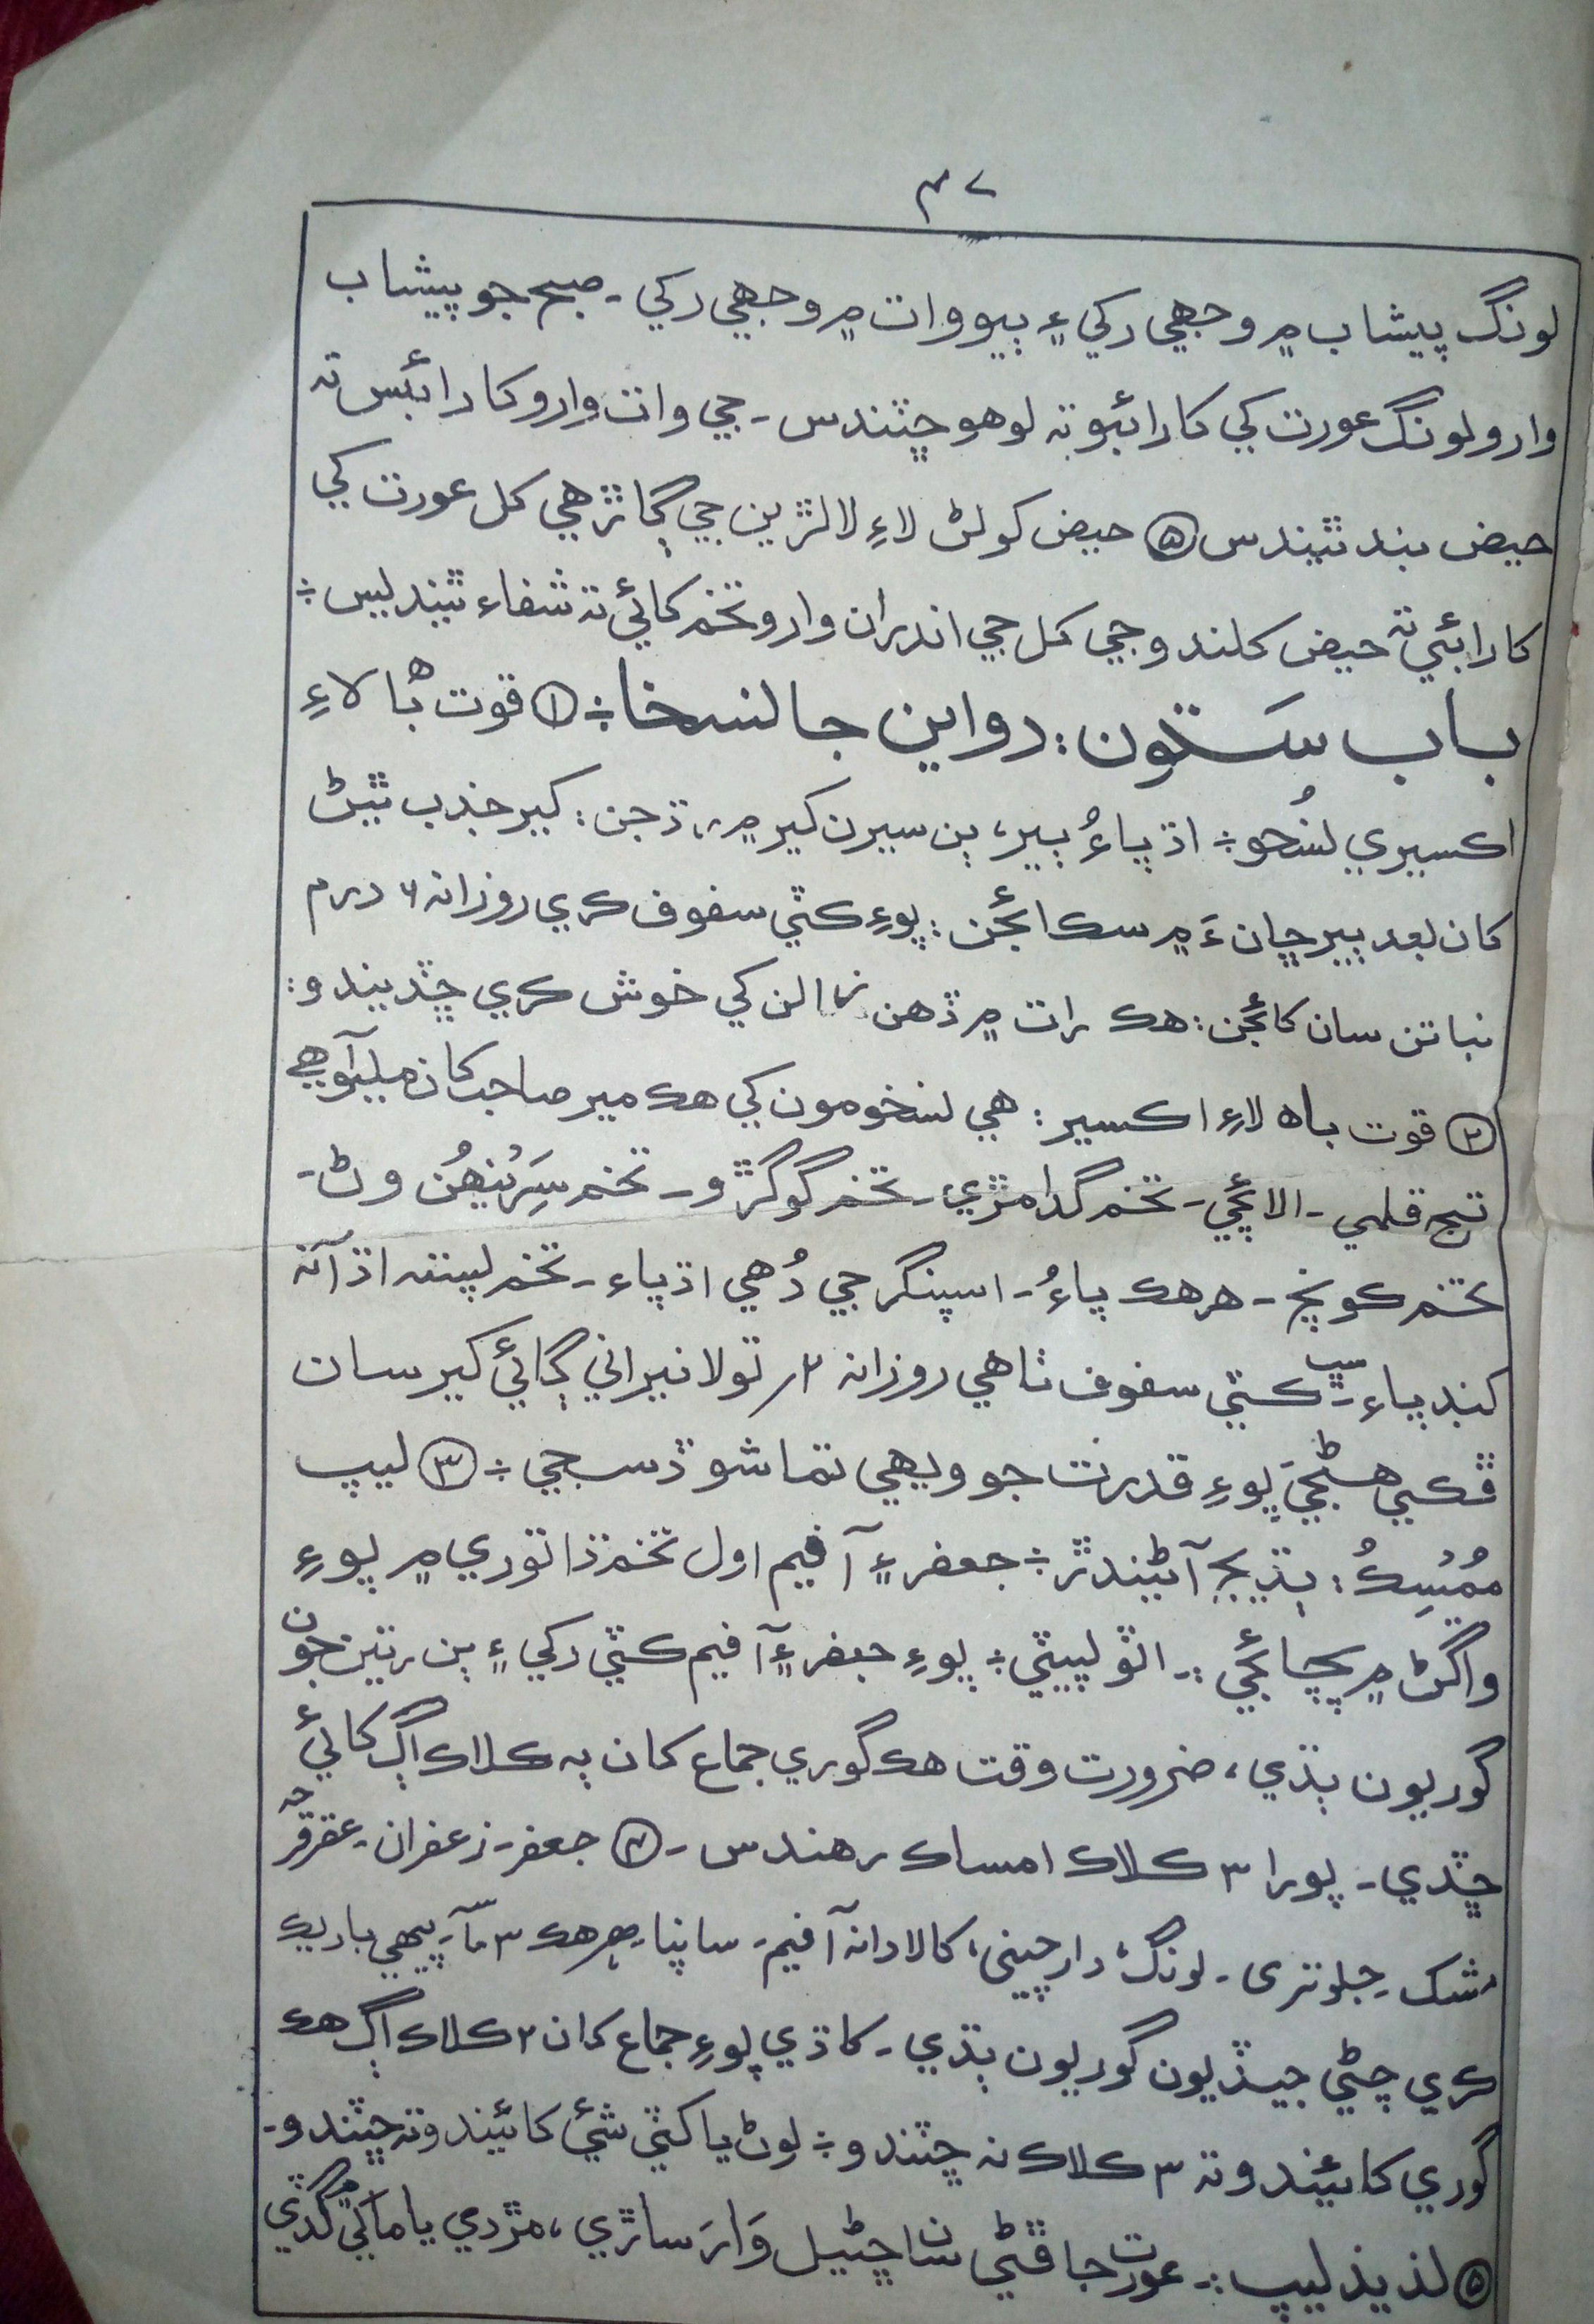 ۴۷
لونگ پيشاب ۾ وجهي رکي ۽ ٻيو وات ۾ وجهي رکي ـ صبح جو پيشاب
وارو لونگ عورت کي کارائبو تہ لوهو ڇٽندس ـ جي وات وارو کارائبس تہ
حيض بند ٿيندس ⑤ حيض کولڻ لاءِ لالڙين جي ڳاڙهي کل عورت کي
کارائبي تہ حيض کلندو جي کل جي اندران وارو تخم کائي تہ شفاء ٿيندليس ÷
باب ستون: دواين جا نسخا÷ ① قوت باه لاءِ
اڪسيري نسُخو÷ اڌ پاءُ ٻير، ٻن سيرن کير ۾ رڌجن: کير جذب ٿيڻ
کان بعد ٻير ڇانءَ ۾ سڪائجن: پوءِ ڪٽي سفوف ڪري روزانہ ۶ درم
نباتن سان کائجن: هڪ رات ۾ ڏهن زالن کي خوش ڪري ڇڏيندو:
② قوت باه لاءِ اڪسير: هي نسخو مون کي هڪ مير صاحب کان مليو آهي
تج قلمي ـ الائچي ـ تخم گدامڙي ـ تخم گوگڙو ـ تخم سَرُنهن وڻ ـ
تخم ڪونچ ـ هر هڪ پاءُ ـ اسپنگر جي دُهي اڌ پاء ـ تخم لپتہ اڌ آنہ
کنڊ پاء ـ سڀ ڪٽي سفوف ٺاهي روزانہ ۲ر تولا نيراني ڳائي کير سان
ڦڪي هڻجي پوءِ قدرت جو ويهي تماشو ڏسجي ÷ ③ ليپ
مُمسِڪُ: ٻڌيجہ آڻيندڙ ÷ جعفر ۽ آفيم اول تخم ڌاتوري ۾ پوءِ
واگڻ ۾ پچائجي :ـ اٽو لپيٽي ÷ پوءِ جعفر ۽ آفيم ڪٽي رکي ۽ ٻن رتين جون
گوريون ٻڌي، ضرورت وقت هڪ گوري جماع کان ٻہ ڪلاڪ اڳ کائي
ڇڏي ـ پورا ۳ ڪلاڪ امساڪ رهندس ـ ④ جعفر ـ زعفران ـ عقرقرحہ
مشک ـ جلوتري ـ لونگ، دارچيني، کالا دانہ آفيم ـ ساپيا ـ هر هڪ ۳ ماـ پيهي باريڪ
ڪري چڻي جيڏيون گوريون ٻڌي ـ کاڌي پوءِ جماع کان ۲ ڪلاڪ اڳ هڪ
گوري کائيندو تہ ۳ ڪلاڪ نہ ڇٽندو ÷ لوڻ يا کٽي شيءِ کائيندو تہ ڇٽندو ـ
⑤ لذيذ ليپ :ـ عورت جا ڦڻي سان ڇڻيل وَارَ ساڙي، مڙدي يا ماکي ۾ گڏي